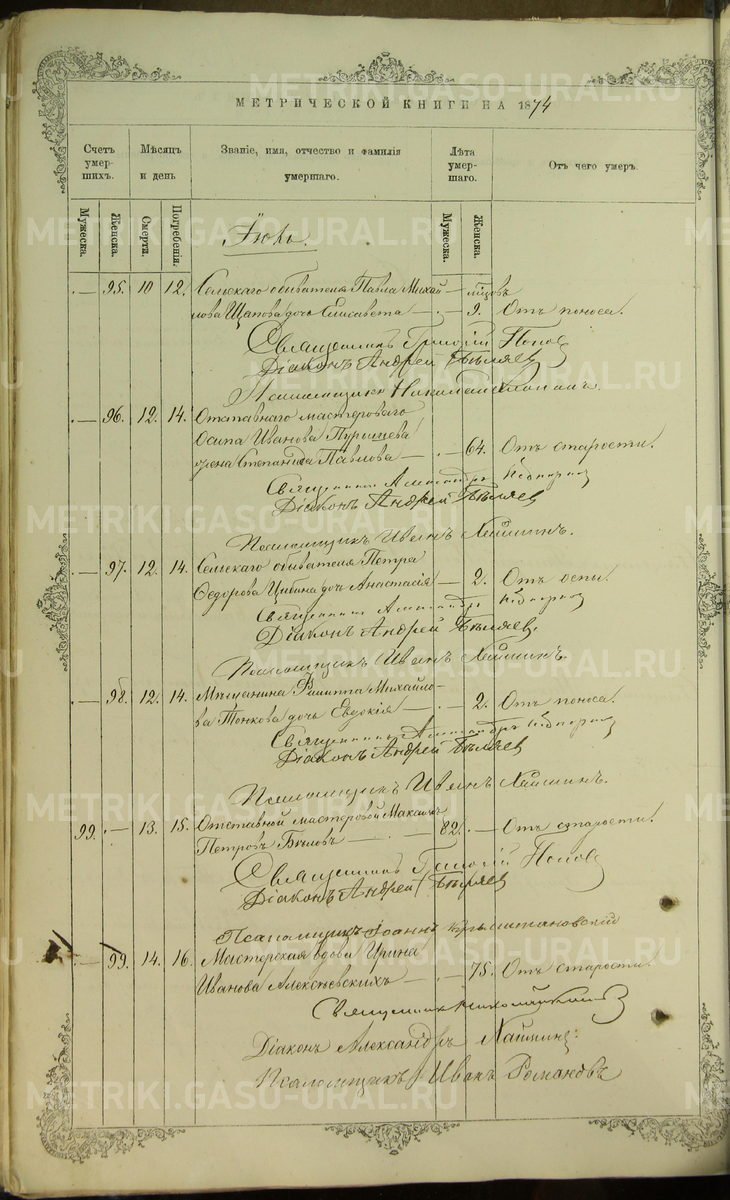 МЕТРИЧЕСКОЙ КНИГИ НА 1874
Счетъ умер-шихъ.
Мѣсяцъ и день
Званіе, имя, отчество и фамилія умершаго.
Лѣта умер-шаго.
Отъ чего умеръ.
Мужеска. Женска. Смерти. Погребенія. Мужеска. Женска.
95. 10 12. Сельскаго обывателя Павла Михай-
лова Щапова дочь Елисавета 9. Отъ поноса.
Священникъ Григорій Попов
Діаконъ Андрей Бѣляев
Псаломщикъ Николай
96. 12. 14. Отставнаго мастероваго
Осипа Иванова
жена Степанида Павлова 64. Отъ старости.
Священникъ Александръ
Діаконъ Андрей Бѣляев
Псаломщикъ Иванъ
97. 12. 14. Сельскаго обывателя Петра
Ѳедорова дочь Анастасія 2. Отъ оспы.
Священникъ Александръ
Діаконъ Андрей Бѣляев.
Псаломщикъ Иванъ
98. 12. 14. Мѣщанина Филиппа Михайло-
ва Тонкова дочь Евдокія 2. Отъ поноса.
Священникъ Александръ
Діаконъ Андрей Бѣляев
Псаломщикъ Иванъ
99. 13. 15. Отставной мастеровой Максимъ
Петровъ Бѣловъ 82. Отъ старости.
Священникъ Григорій Попов
Діаконъ Андрей Бѣляев
Псаломщикъ Іоаннъ
99. 14. 16. Мастерская вдова Ирина
Иванова Алексѣевскихъ 75. Отъ старости.
Священникъ
Діаконъ Александръ
Псаломщикъ Иванъ Романовъ
METRIKI.GASO-URAL.RU